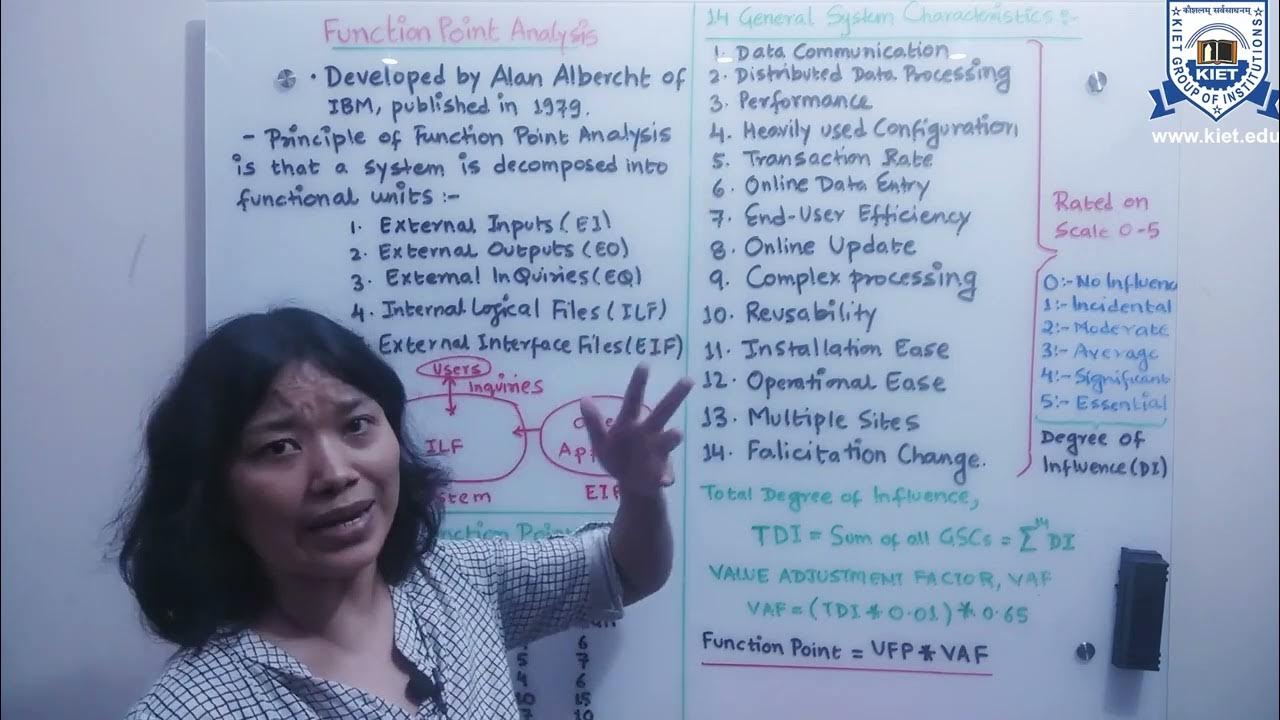 Function Point Analysis
• Developed by Alan Albercht of
IBM, published in 1979.
- Principle of Function Point Analysis
is that a system is decomposed into
functional units :-
1. External Inputs (EI)
2. External Outputs (EO)
3. External InQuiries (EQ)
4. Internal Logical Files (ILF)
External Interface Files (EIF)
Users
Inquiries
ILF
EIF
6
5 7
4 6
10 15
7 10
14 General System Characteristics :-
1. Data Communication
2. Distributed Data Processing
3. Performance
4. Heavily used Configuration
5. Transaction Rate
6. Online Data Entry
7. End-User Efficiency
8. Online Update
9. Complex processing
10. Reusability
11. Installation Ease
12. Operational Ease
13. Multiple Sites
14. Falicitation Change.
Rated on
Scale 0-5
0:- No Influenc
1:- Incidental
2:- Moderate
3:- Average
4:- Significant
5:- Essential
Degree of
Influence (DI)
Total Degree of Influence,
TDI = Sum of all GSCs = Σ¹⁴ DI
VALUE ADJUSTMENT FACTOR, VAF
VAF = (TDI * 0.01) * 0.65
Function Point = UFP * VAF
कौशलम् सर्वसाधनम्
KIET GROUP OF INSTITUTIONS
KIET
www.kiet.edu